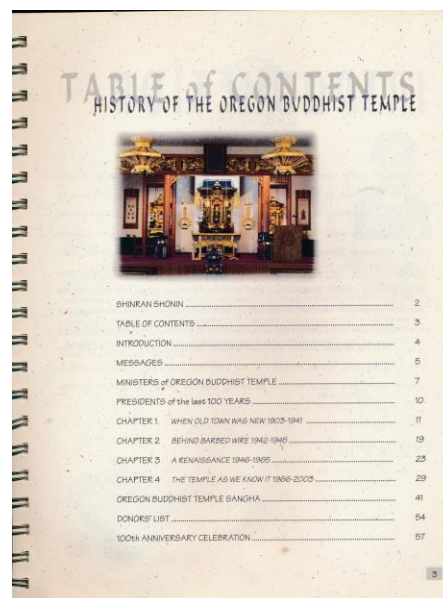 TABLE of CONTENTS
HISTORY OF THE OREGON BUDDHIST TEMPLE
SHINRAN SHONIN 2
TABLE OF CONTENTS 3
INTRODUCTION 4
MESSAGES 5
MINISTERS of OREGON BUDDHIST TEMPLE 7
PRESIDENTS of the last 100 YEARS 10
CHAPTER 1 WHEN OLD TOWN WAS NEW 1903-1941 11
CHAPTER 2 BEHIND BARBED WIRE 1942-1945 19
CHAPTER 3 A RENAISSANCE 1946-1965 23
CHAPTER 4 THE TEMPLE AS WE KNOW IT 1966-2003 29
OREGON BUDDHIST TEMPLE SANGHA 41
DONORS' LIST 54
100th ANNIVERSARY CELEBRATION 57
3